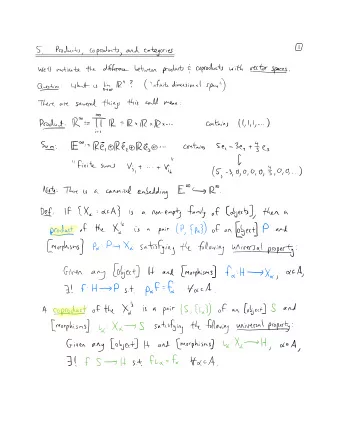 5. Products, coproducts, and categories ①
We'll motivate the difference between products & coproducts with vector spaces.
Question: What is lim n→∞ ℝⁿ? ("infinite dimensional space")
There are several things this could mean.
Product: ℝ^∞ := ∏ ℝ = ℝ×ℝ×ℝ×⋯ contains (1,1,1,⋯)
Sum: 𝔼^∞ = ℝe₁⊕ℝe₂⊕ℝe₃⊕⋯ contains
"finite sums v_{i₁} + ⋯ + v_{iₖ}"
Note: There is a canonical embedding 𝔼^∞ ↪ ℝ^∞.
Def: If {X_α : α∈A} is a non-empty family of [objects], then a
product of the X_α's is a pair (P, {p_α}) of an [object] P and
[morphisms] p_α: P→X_α satisfying the following universal property:
Given any [object] H and [morphisms] f_α: H→X_α, α∈A,
∃! f: H→P s.t. p_α f = f_α ∀α∈A.
A coproduct of the X_α's is a pair (S, {i_α}) of an [object] S and
[morphisms] i_α: X_α→S satisfying the following universal property:
Given any [object] H and [morphisms] X_α→H, α∈A,
∃! f: S→H s.t. f i_α = f_α ∀α∈A.